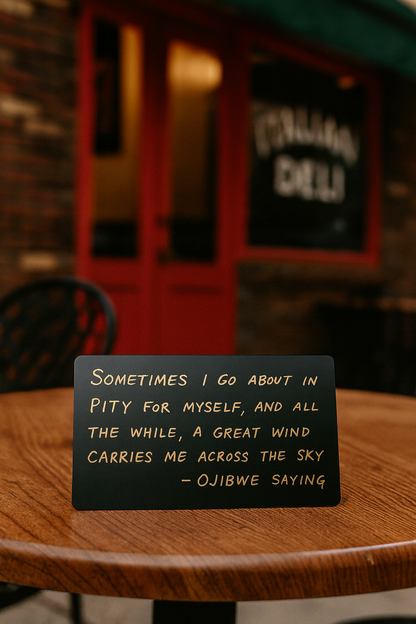 ITALIAN
DELI
SOMETIMES I GO ABOUT IN
PITY FOR MYSELF, AND ALL
THE WHILE, A GREAT WIND
CARRIES ME ACROSS THE SKY
– OJIBWE SAYING